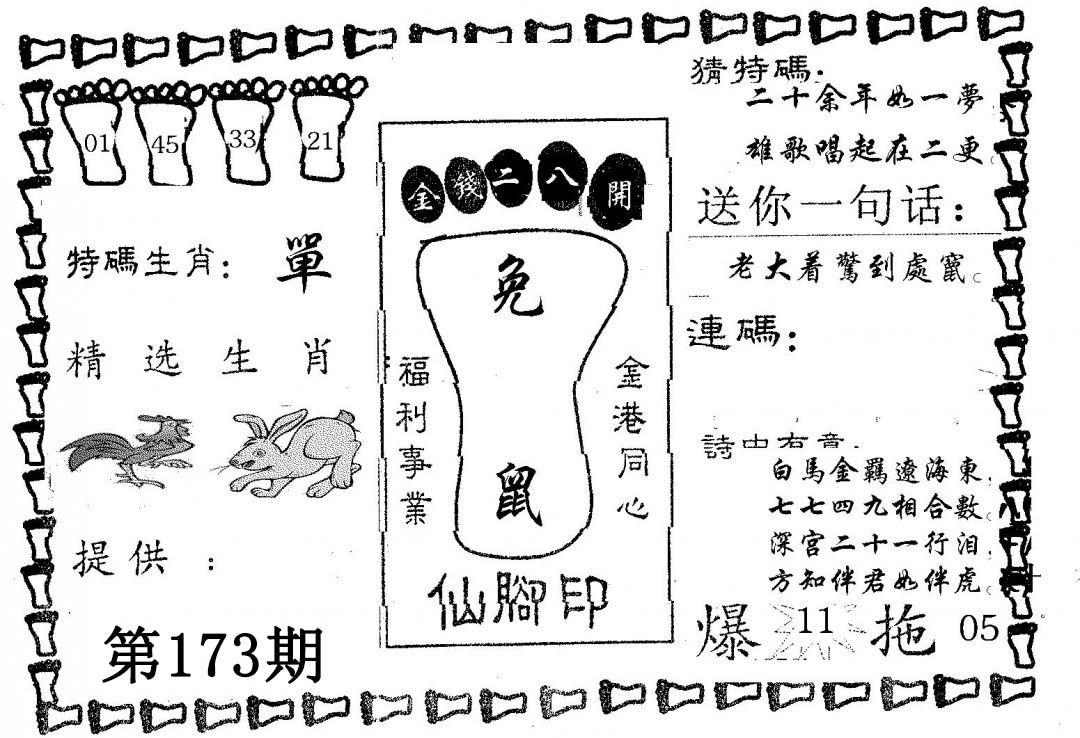 01 45 33 21
特碼生肖： 單
精选生肖
提供：
第173期
金錢二八開
兔
鼠
福利事業
金港同心
仙腳印
猜特碼：
二十余年如一夢，
雄歌唱起在二更。
送你一句话：
老大着驚到處竄。
連碼：
詩中有意：
白馬金羈遼海東，
七七四九相合數。
深宮二十一行泪，
方知伴君如伴虎。
爆 11 拖 05